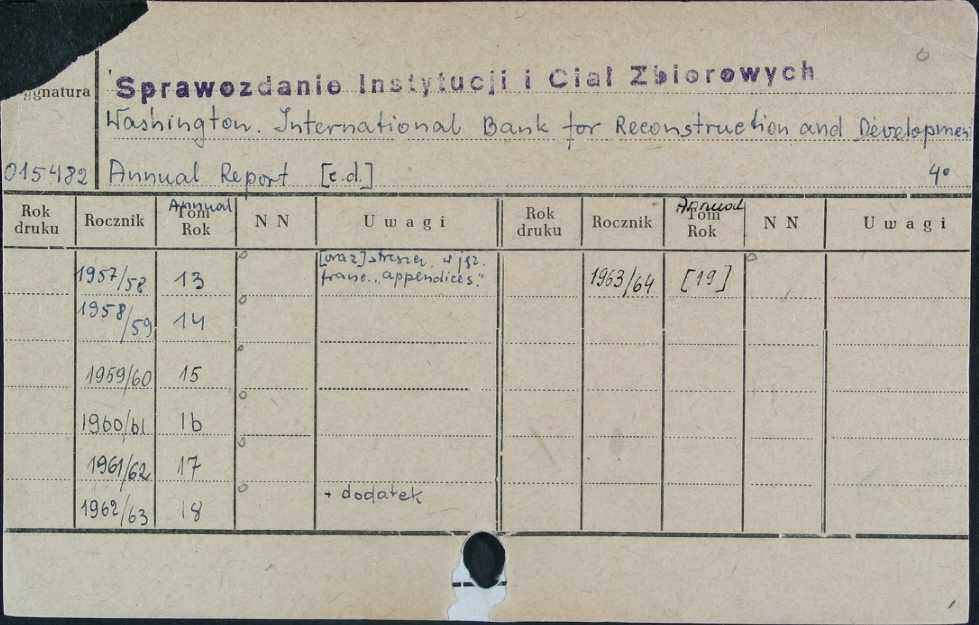 Sprawozdanie Instytucji i Ciał Zbiorowych
ygnatura
Washington. International Bank for Reconstruction and Developmen
015482 Annual Report [c.d.] 4°
Rok druku Rocznik Annual Tom Rok N N Uwagi Rok druku Rocznik Annual Tom Rok N N Uwagi
[oraz] streszcz. w jęz.
1957/58 13 franc. „appendices." 1963/64 [19]
1958/59 14
1959/60 15
1960/61 16
1961/62 17
1962/63 18 + dodatek